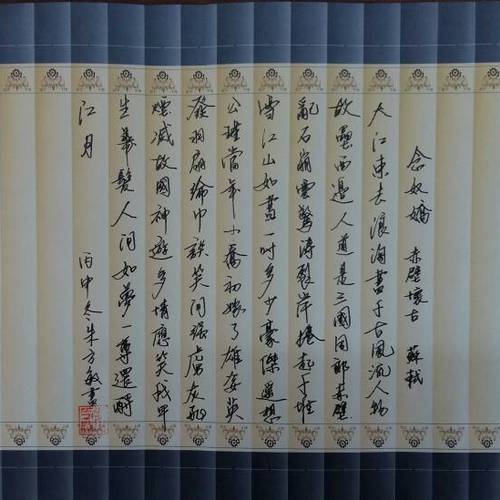 念奴嬌 赤壁懷古 蘇軾
大江東去浪淘盡千古風流人物
故壘西邊人道是三國周郎赤壁
亂石崩雲驚濤裂岸捲起千堆
雪江山如畫一時多少豪傑遙想
公瑾當年小喬初嫁了雄姿英
發羽扇綸巾談笑間強虜灰飛
煙滅故國神遊多情應笑我早
生華髮人間如夢一尊還酹
江月
丙申冬朱方敏書